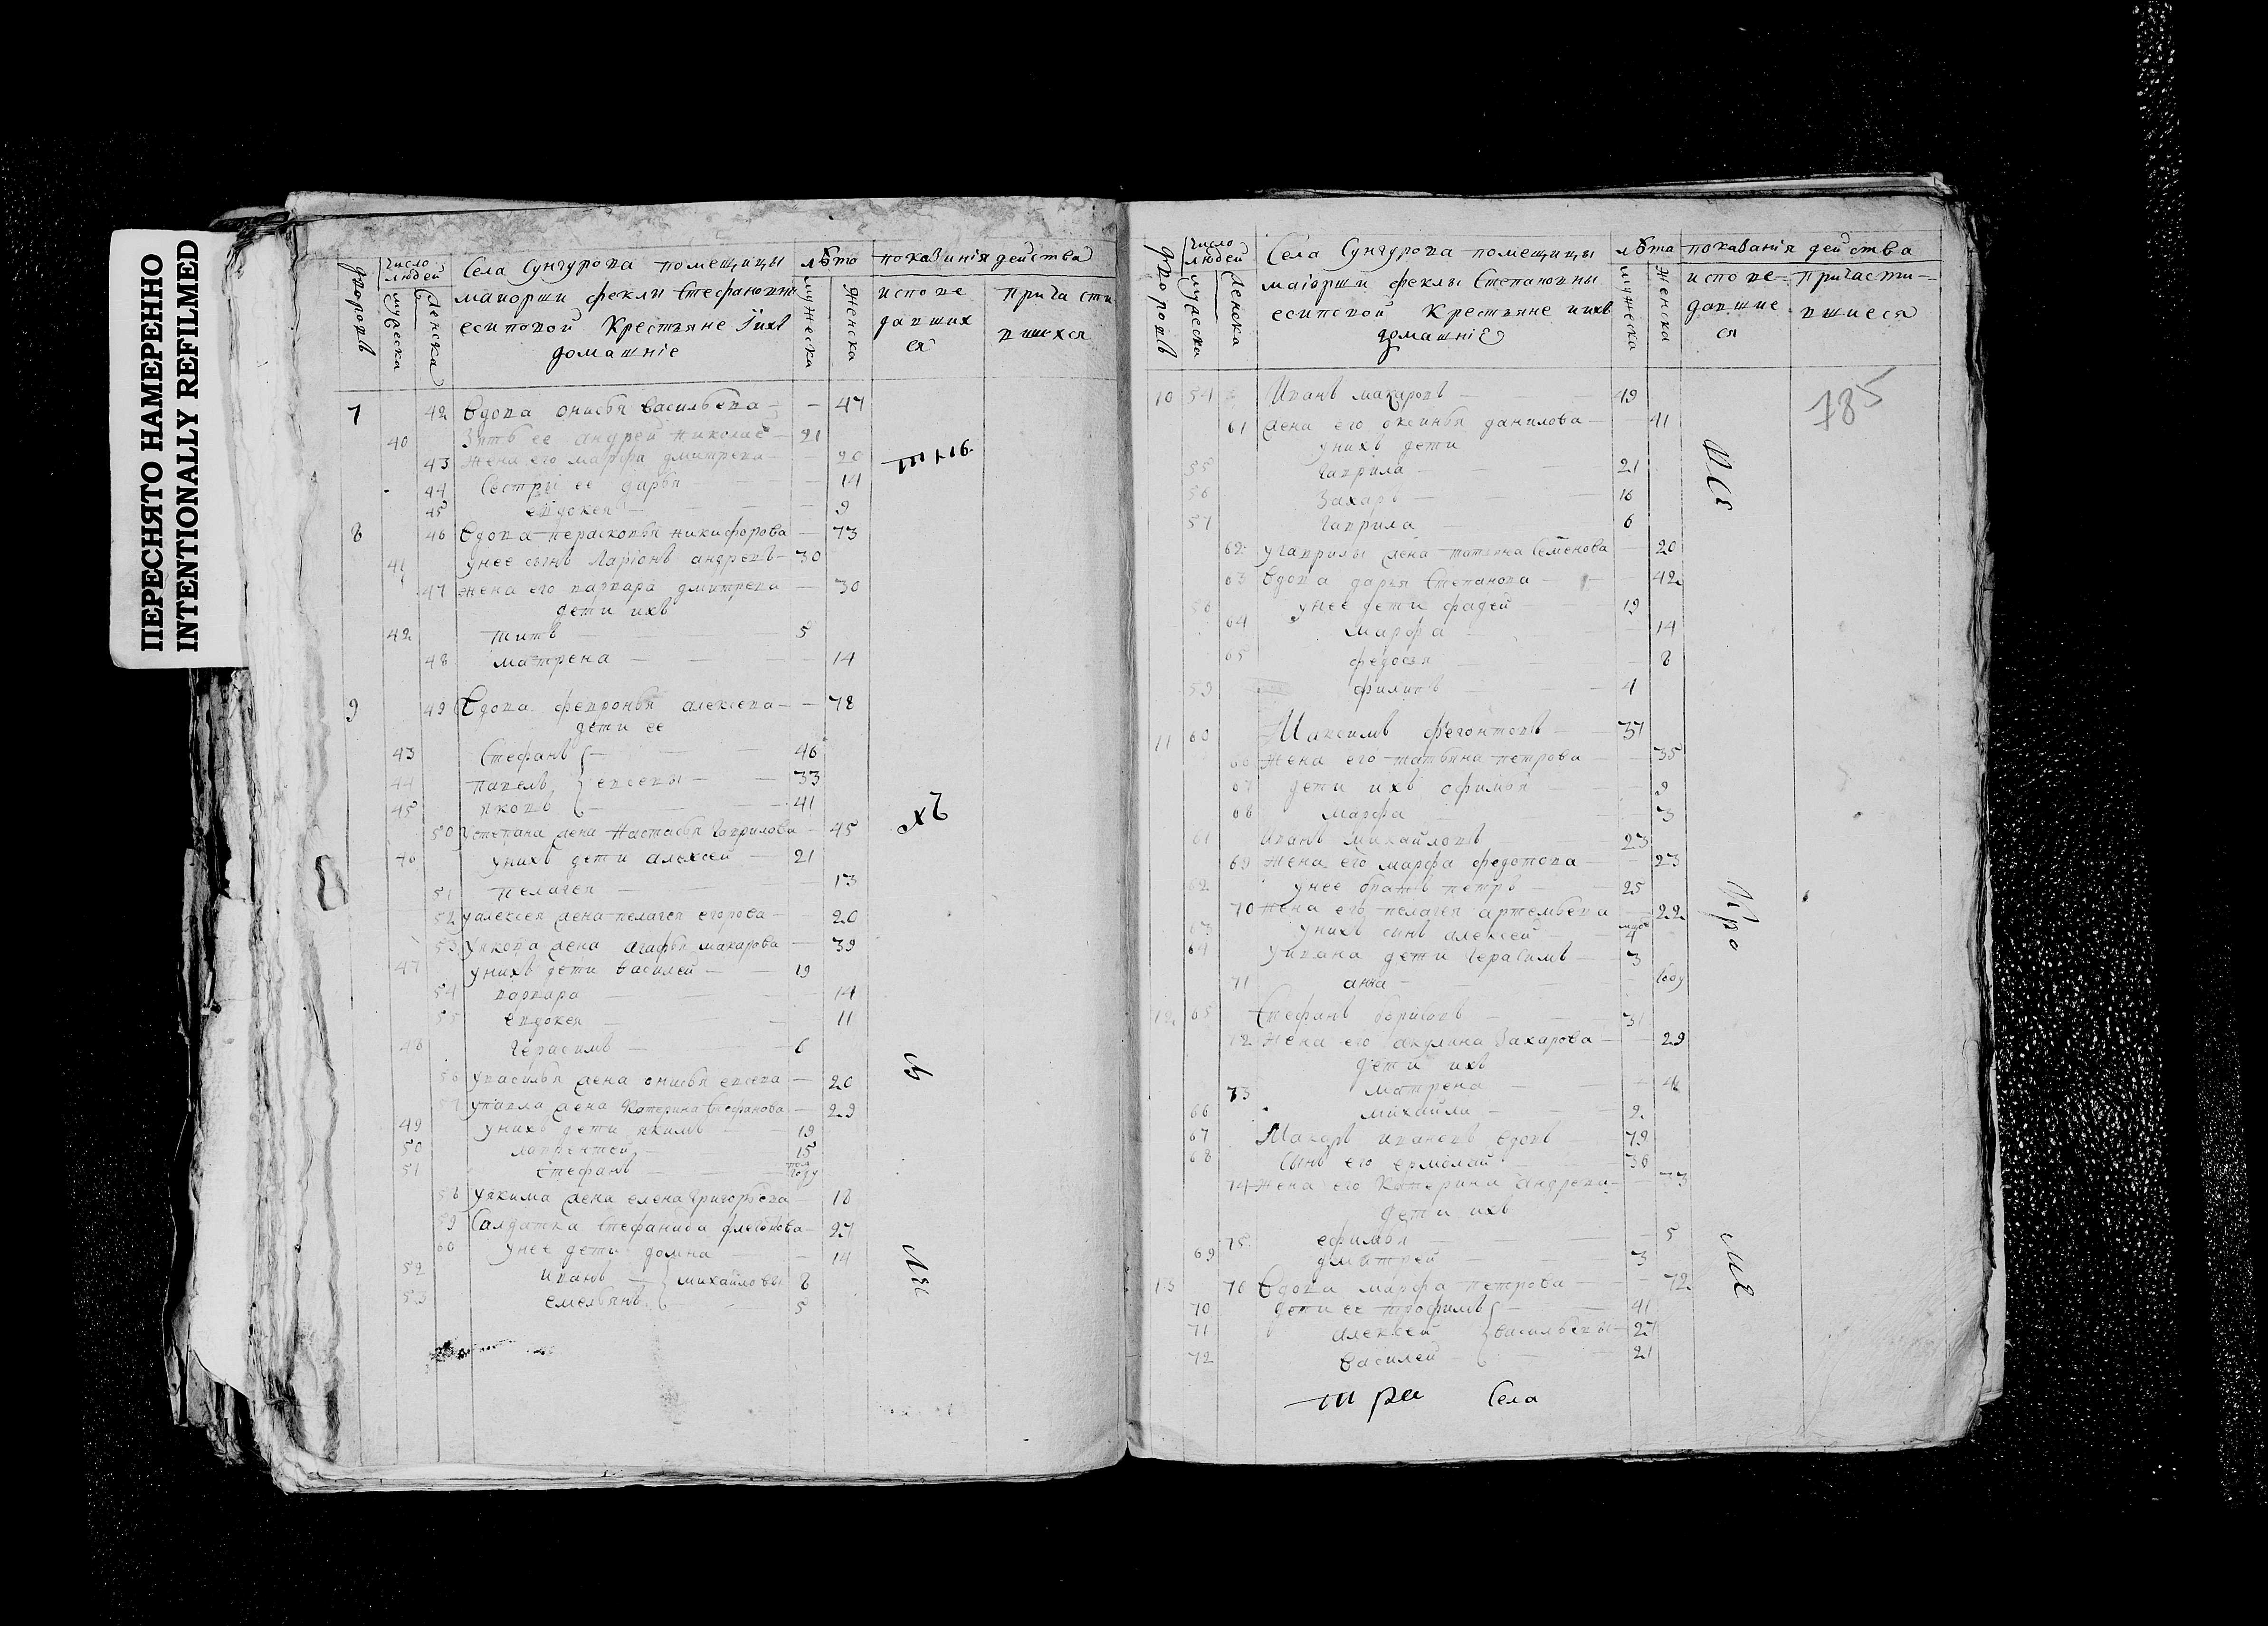 ПЕРЕСНЯТО НАМЕРЕННО
INTENTIONALLY REFILMED
дворовъ
число людей
мужеска
женска
Села Сунгурова помещицы
маиорши феклы Стефановны
есиповой Крестьяне ї ихъ
домашніе
лѣта
мужеска
женска
показанія действа
исповедавшихся
причастившихся
7 42 Вдова онисья Васильева 47
40 Зять ее андрей николае 21
43 Жена его марфа дмитрева 20
44 Сестры ее дарья 14
45 евдокея 9
8 46 Вдова перасковья никифорова 73
41 унее сынъ Ларіонъ андревъ 30
47 жена его варвара дмитрева 30
дети ихъ
42 титъ 5
48 матрена 14
9 49 Вдова февронья алексева 78
дети ее
43 Стефанъ 46
44 павелъ евсевы 33
45 яковъ 41
50 устепана жена Настасья Гаврилова 45
46 унихъ дети алексей 21
51 пелагея 13
52 уалексея жена пелагея егорова 20
53 уякова жена агафья макарова 39
47 унихъ дети василей 19
54 варвара 14
55 евдокея 11
48 Герасимъ 6
56 увасилья жена онисья евсева 20
57 упавла жена Катерина Стефанова 29
49 унихъ дети якимъ 19
50 лаврентей 15
51 Стефанъ году
58 уякима жена елена Григорьева 18
59 Салдатка Стефанида 27
60 унее дети домна 14
52 иванъ михайловы 8
53 емельянъ 5
дворовъ
число людей
мужеска
женска
Села Сунгурова помещицы
маіорши феклы Степановны
есиповой Крестьяне и ихъ
домашніе
лѣта
мужеска
женска
показанія действа
исповедавшиеся
причастившиеся
785
10 54 Иванъ макаровъ 49
61 жена его аксинья данилова 41
унихъ дети
55 Гаврила 21
56 Захаръ 16
57 Гаврила 6
62 угаврилы жена татьяна Семенова 20
63 Вдова дарья Степанова 42
58 унее дети фадей 19
64 марфа 14
65 федосья 8
59 филипъ 4
11 60 Максимъ 37
66 Жена его татьяна петрова 35
67 дети ихъ офимья 9
68 марфа 3
61 Иванъ михайловъ 23
69 Жена его марфа федотова 23
62 унее братъ петръ 25
70 Жена его пелагея артемьева 22
63 унихъ сынъ алексей 4
64 Уивана дети Герасимъ 3
71 анна году
12 65 Стефанъ борисовъ 31
72 Жена его акулина Захарова 29
дети ихъ
73 матрена
66 михайла 2
67 Макаръ ивановъ вдовъ 79
68 сынъ его ермолай 36
74 Жена его Катерина андрева 33
дети ихъ
75 ефимья 5
69 дмитрей 3
13 76 Вдова марфа петрова 72
70 дети ее трофимъ 41
71 алексей васильевы 27
72 Василей 21
Села